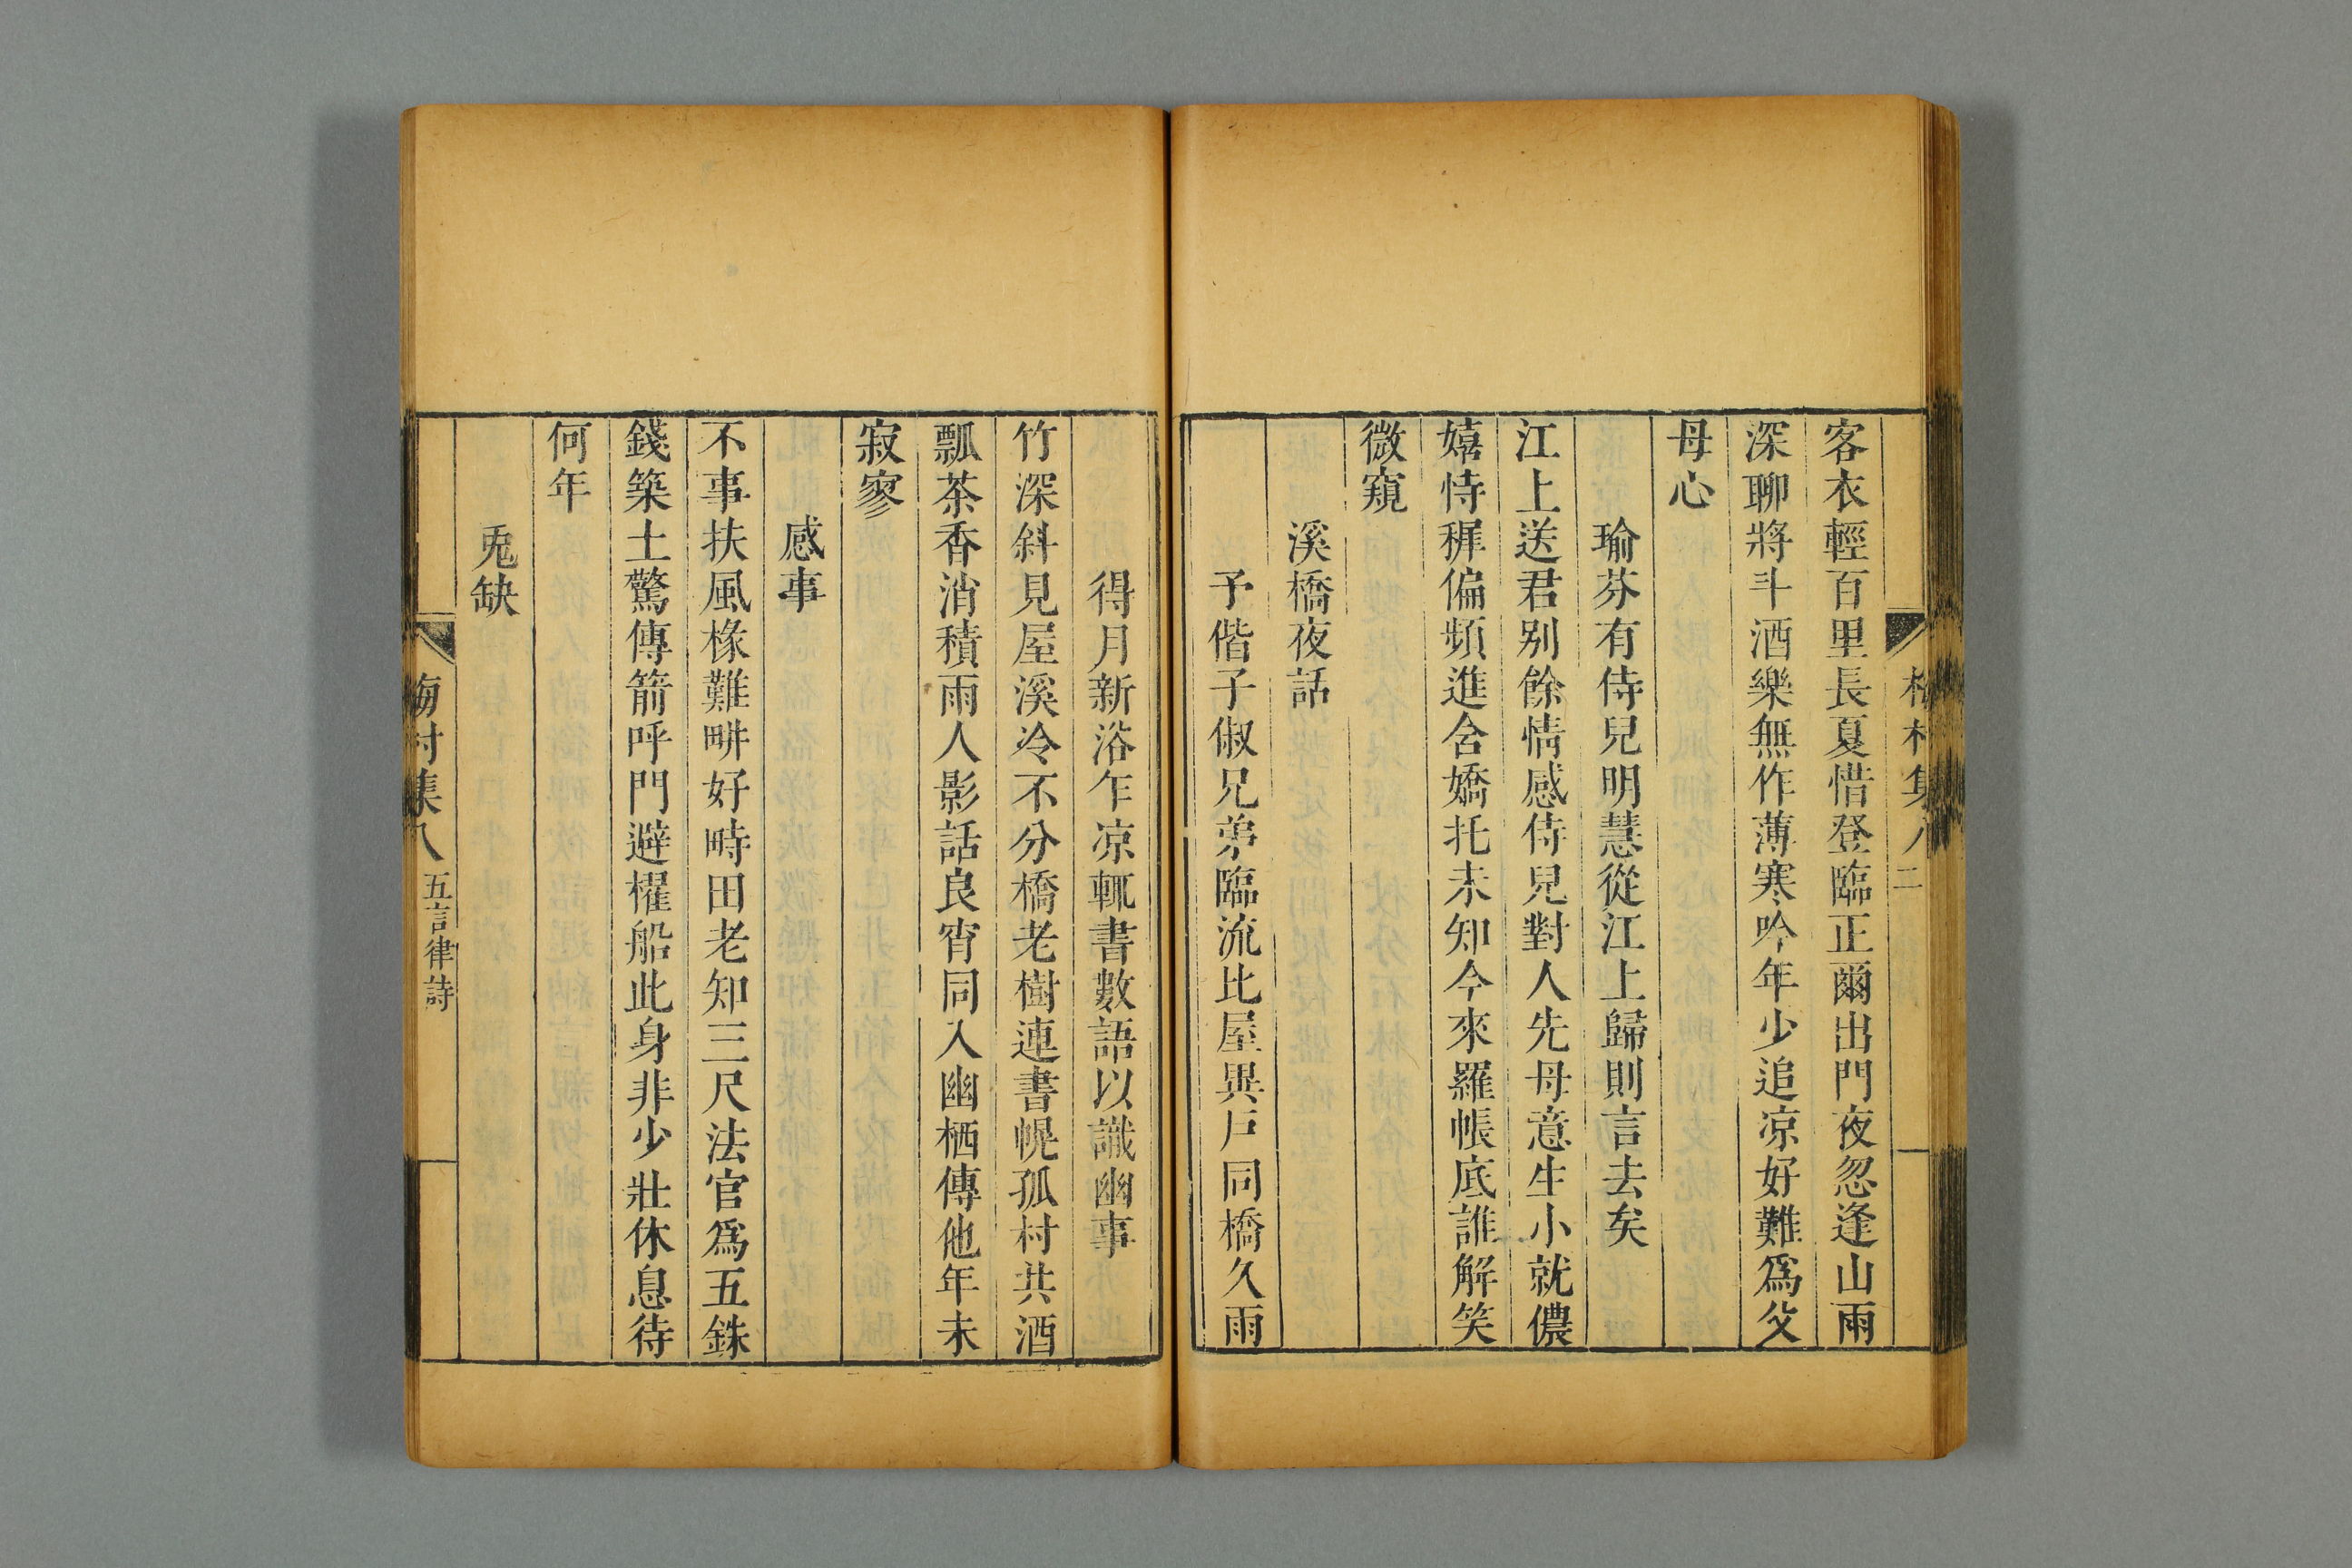 梅村集八 二
客衣輕百里長夏惜登臨正爾出門夜忽逢山雨
深聊將斗酒樂無作薄寒吟年少追凉好難爲父
母心
瑜芬有侍兒明慧從江上歸則言去矣
江上送君别餘情感侍兒對人先母意生小就儂
嬉恃穉偏頻進含嬌托未知今來羅帳底誰解笑
微窺
溪橋夜話
予偕子俶兄弟臨流比屋異戸同橋久雨
得月新浴乍凉輒書數語以識幽事
竹深斜見屋溪冷不分橋老樹連書幌孤村共酒
瓢茶香消積雨人影話良宵同入幽栖傳他年未
寂寥
感事
不事扶風椽難畊好畤田老知三尺法官爲五銖
錢築土驚傳箭呼門避櫂船此身非少壯休息待
何年
兎缺
梅村集八 五言律詩